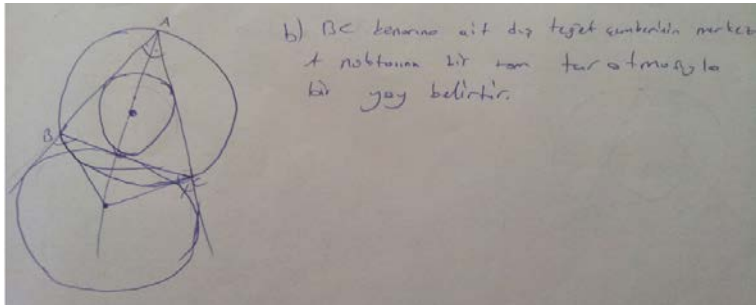 A
b) BC kenarına ait dış teğet çemberinin merkez
A noktasının bir tam tur atmasıyla
bir yay belirtir.
B
C